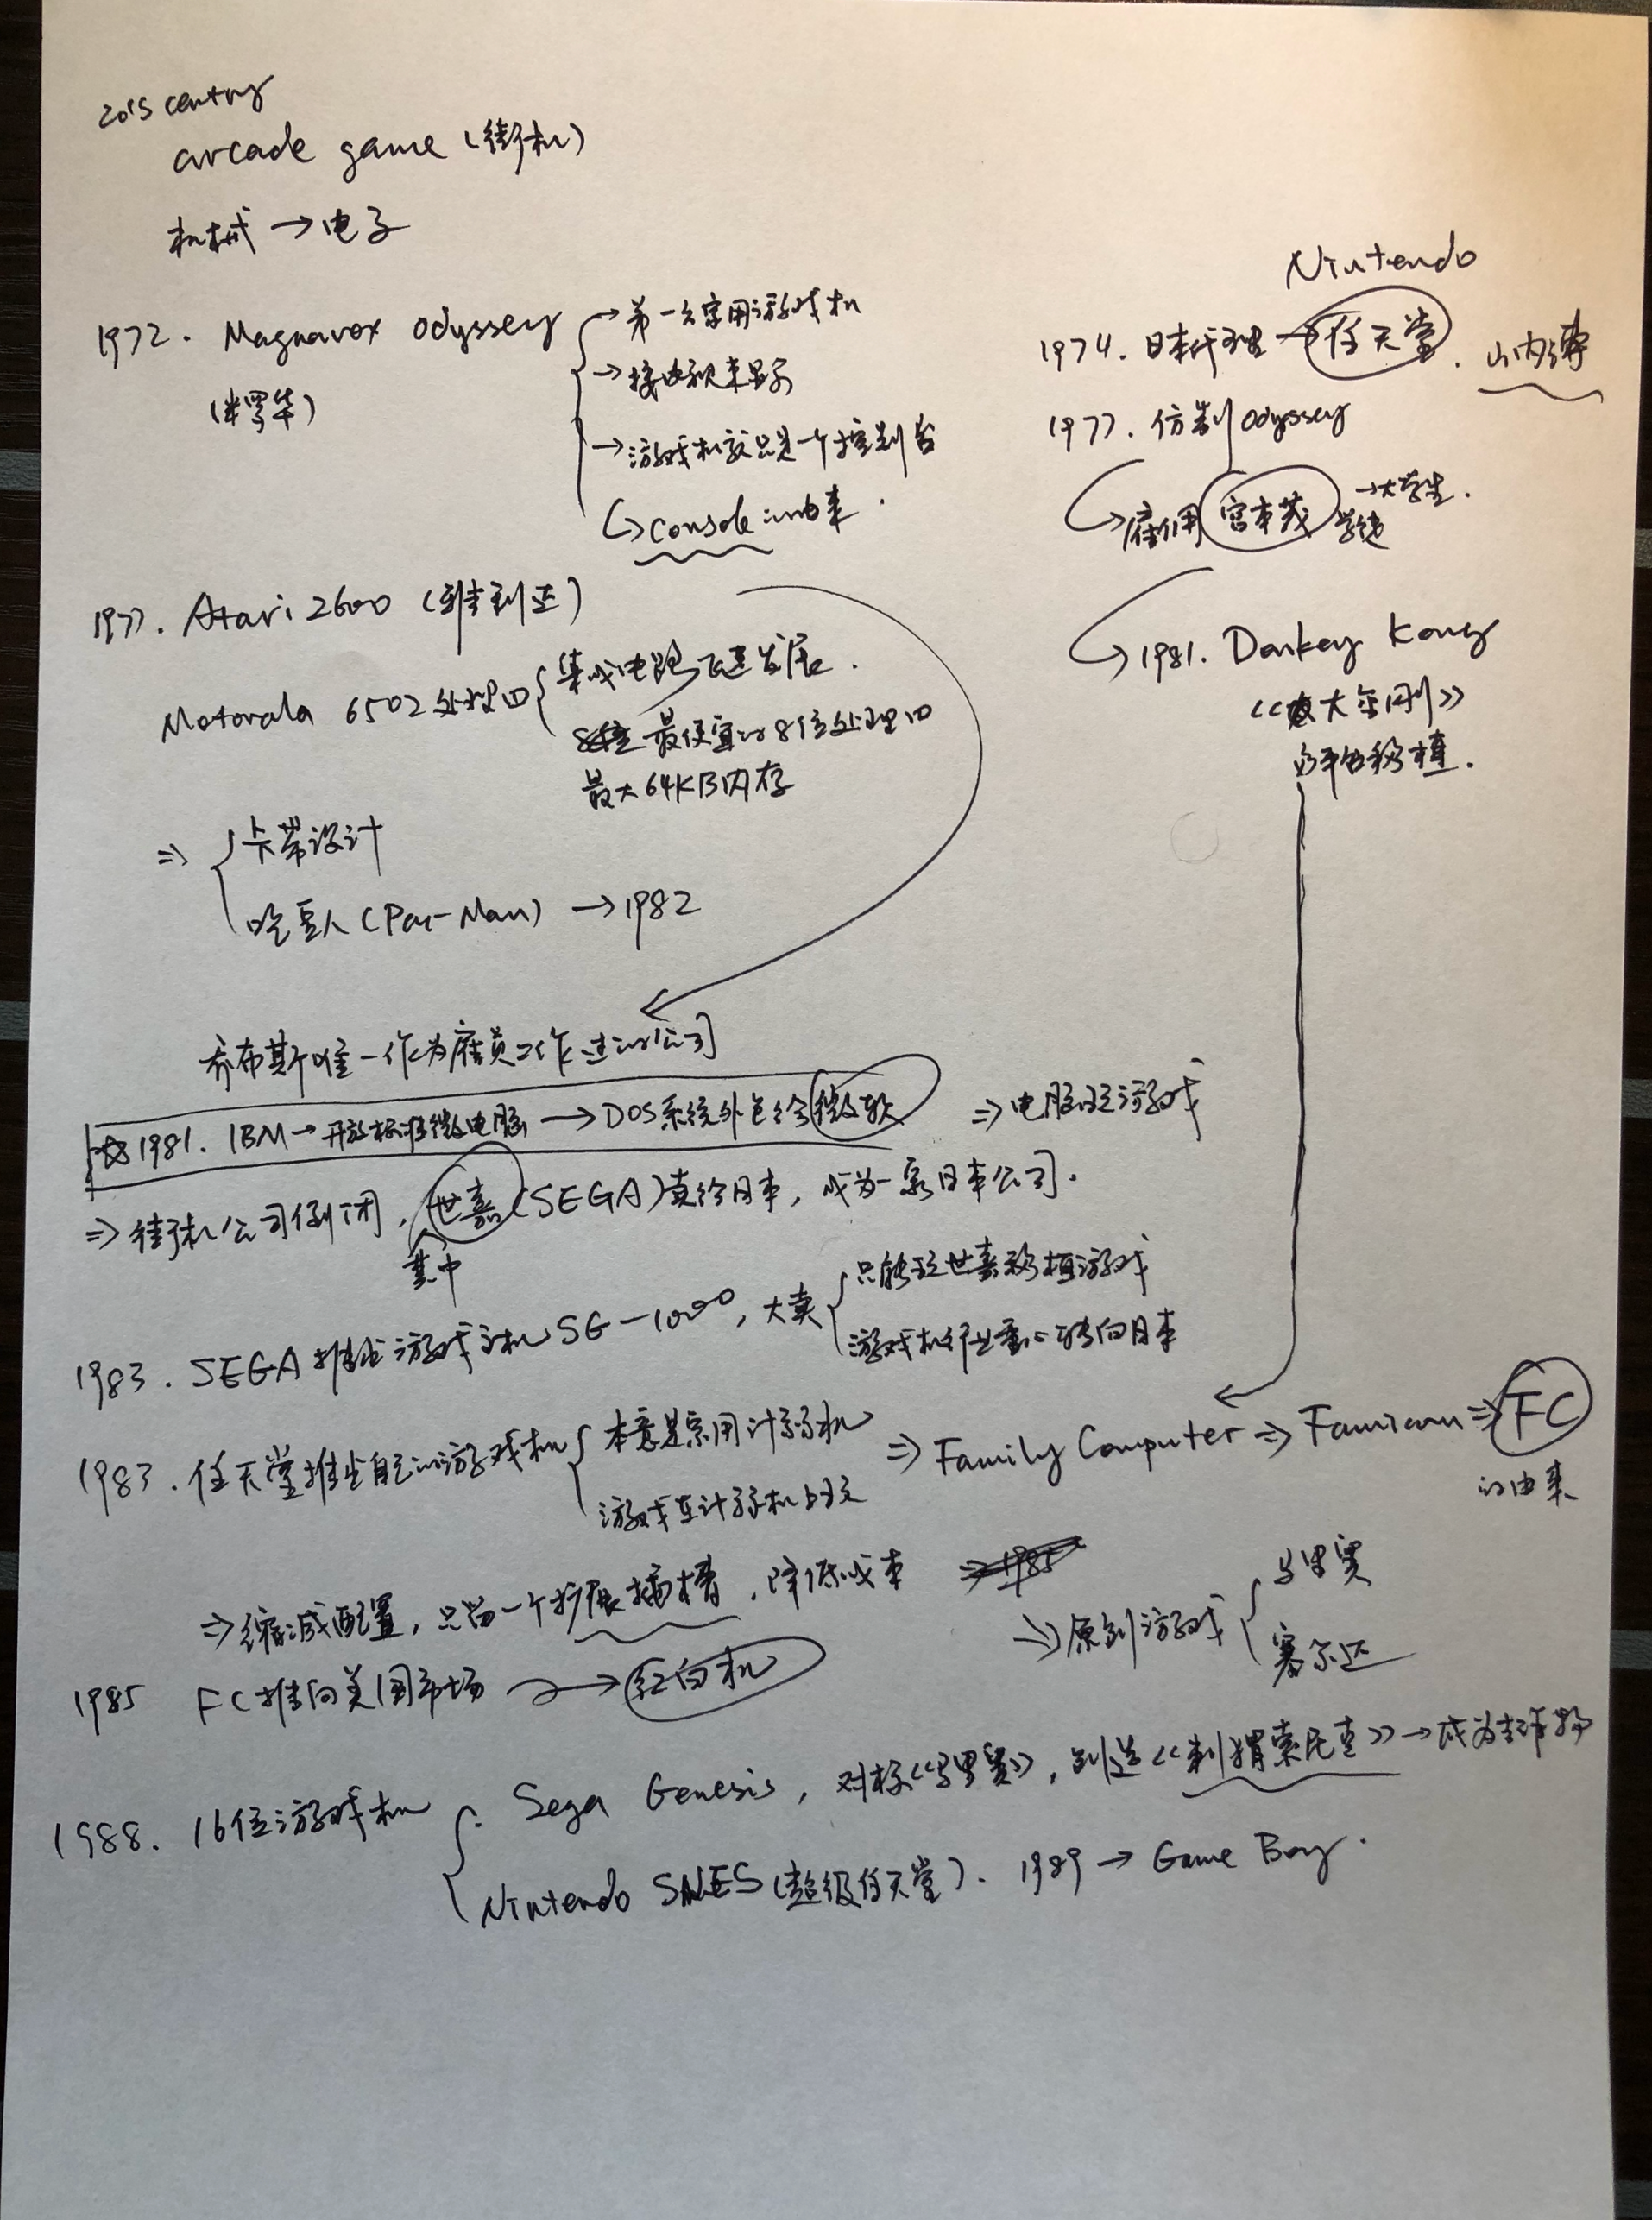 20's century
arcade game (街机)
机械 → 电子
1972. Magnavox odyssey
(米罗华)
→ 第一台家用游戏机
→ 接电视来显示
→ 游戏机较只是一个控制台
↳ console 的由来.
Nintendo
1974. 日本代理 → 任天堂. 山内溥
1977. 仿制 odyssey
↳ 雇佣 宫本茂 → 大学生.
1981. Donkey Kong
《大金刚》
的平台移植.
1977. Atari 2600 (雅达利)
Motorola 6502 处理口
集成电路飞速发展.
最便宜的8位处理口
最大64KB内存
⇒ 卡带设计
吃豆人 (Pac-Man) → 1982
乔布斯唯一作为雇员工作过的公司
☆ 1981. IBM → 开放标准微电脑 → DOS系统外包给微软 ⇒ 电脑玩游戏
⇒ 街机公司倒闭, 世嘉 (SEGA) 卖给日本, 成为一家日本公司.
其中
1983. SEGA 推出游戏主机 SG-1000, 大卖
只能玩世嘉移植游戏
游戏机行业重心转向日本
1983. 任天堂推出自己的游戏机
本意是家用计算机
游戏在计算机上玩
⇒ Family Computer ⇒ Famicom ⇒ FC
的由来
⇒ 缩减配置, 只留一个扩展插槽, 降低成本 ⇒ 1985
⇒ 原创游戏
马里奥
塞尔达
1985 FC推向美国市场 → 红白机
1988. 16位游戏机
Sega Genesis, 对标《马里奥》, 创造《刺猬索尼克》→ 成为吉祥物
Nintendo SNES (超级任天堂). 1989 → Game Boy.